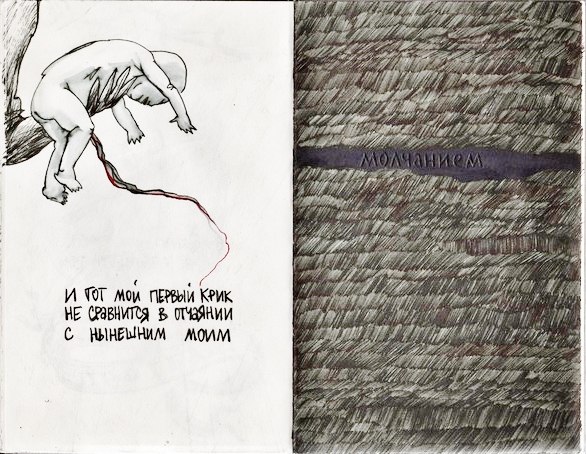 И тот мой первый крик
не сравнится в отчаянии
с нынешним моим
молчанием